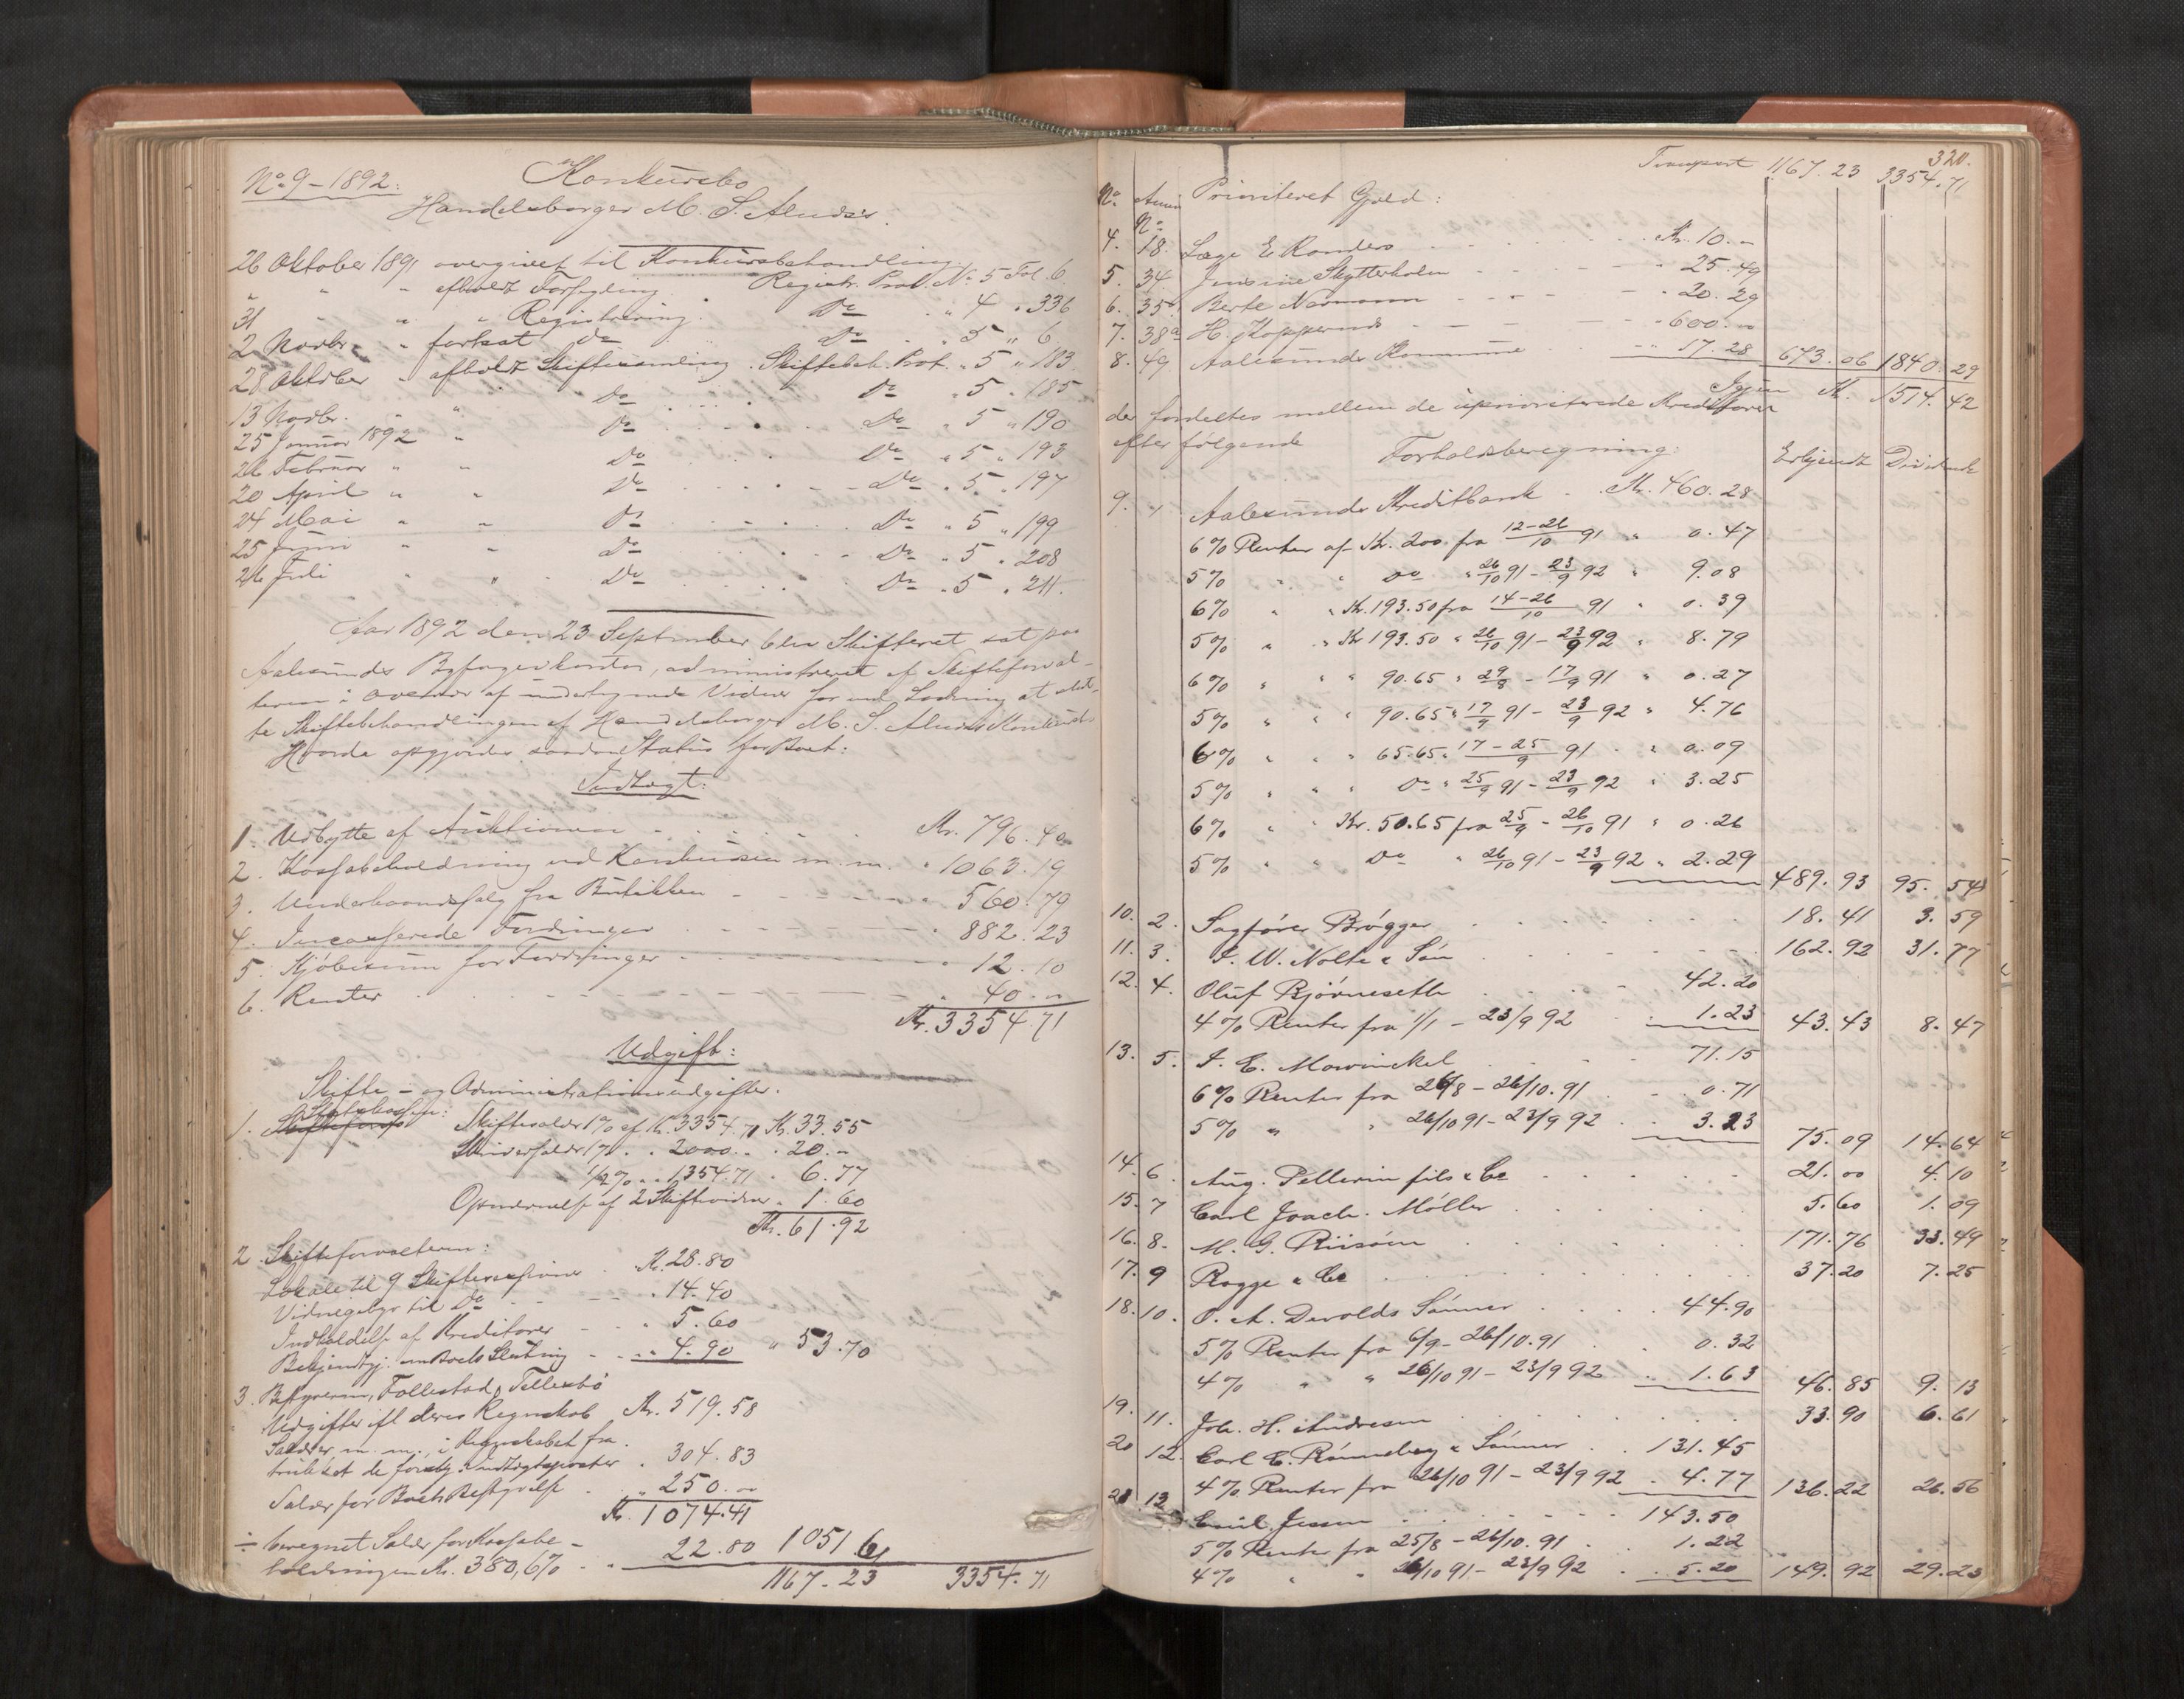 No 9 – 1892:
Konkursbo
Handelsborger M. S. Alnæs's.
26 Oktober 1891 overgivet til Konkursbehandling.
" " " afholdt Forsegling. Registr. Prot. No 5 Fol. 6
31 " " " Registrering. Do " 4 " 336
2 Novbr. " fortsat do Do " 5 " 6
28 Oktober " afholdt Skiftesamling. Skiftebeh. Prot. " 5 " 183
13 Novbr. " Do Do " 5 " 185
25 Januar 1892 " Do Do " 5 " 190
26 Februar " " Do Do " 5 " 193
20 April " " Do Do " 5 " 197
24 Mai " " Do Do " 5 " 199
25 Juni " " Do Do " 5 " 208
26 Juli " " Do Do " 5 " 211.
Aar 1892 den 23 September blev Skifteret sat paa
Aalesunds Byfogedkontor, administreret af Skifteforval-
teren i Overvær af undertegnede Vidner for ved Lodning at slut-
te Skiftebehandlingen af Handelsborger M. S. Alnæs Konkursbo
Hvorda opgjordes saadan Status for Boet:
Indtægt:
1. Udbytte af Auktionen Kr. 796.40
2. Kassabeholdning ved Konkursen m. m. " 1063.19
3. Underhaandssalg fra Butikken " 560.79
4. Incasserede Fordringer " 882.23
5. Kjøbesum for Fordringer " 12.10
6. Renter " 40. "
Kr. 3354.71
Udgift:
Skifte- og Administrationsudgifter.
1. Statskassen: Skiftesalær 1% af Kr. 3354.71 Kr. 33.55
Skriversalær 1% " 2000. " " 20. "
1/2% " " 1354.71 " 6.77
Opnævnelse af 2 Skiftevidner " 1.60
Kr. 61.92
2. Skifteforvalteren:
Lokale til 9 Skiftesessioner Kr. 28.80
Vidnegebyr til Do " 14.40
Indkaldelse af Kreditorer " 5.60
Bekjendtgj. om Boets Slutning " 4.90 " 53.70
3. Bestyreren, Follestad, Tellesbø
Udgifter ifl deres Regnskab Kr. 519.58
Salærer m. m., i Regnskabet fra-
trukket de førstn. Indtægtsposter " 304.83
Salær for Boets Bestyrelse " 250. "
Kr. 1074.41
÷ beregnet Salær for Kassabe-
holdningen Kr. 380, 6% " 22.80 1051.61
1167.23 3354.71
320.
Transport 1167.23 3354.71
No Anm. No Prioriteret Gjeld:
4. 18. Læge E. Randers Kr. 10. "
5. 34. Jensine Skytterholm " 25.49
6. 35. Berte Normann " 20.29
7. 38a H. Koppernæs " 600. "
8. 49 Aalesunds Kommune " 17.28 673.06 1840.29
Igjen Kr. 1514.42
der fordeltes mellem de uprioriterede Kreditorer
efter følgende
Forholdsberegning: Erkjendt Dividende
9. 1 Aalesunds Kreditbank Kr. 460.28
6% Renter af Kr. 200 fra 12-26/10 91 " 0.47
5% " " Do " 26/10 91 – 23/9 92 " 9.08
6% " " Kr. 193.50 fra 14-26/10 91 " 0.39
5% " " Kr 193.50 " 26/10 91 – 23/9 92 " 8.79
6% " " " 90.65 " 29/8 – 17/9 91 " 0.27
5% " " " 90.65 " 17/9 91 – 23/9 92 " 4.76
6% " " " 65.65 " 17-25/9 91 " 0.09
5% " " " Do " 25/9 91 – 23/9 92 " 3.25
6% " " Kr. 50.65 fra 25/9 – 26/10 91 " 0.26
5% " " Do " 26/10 91 – 23/9 92 " 2.29
489.93 95.54
10. 2. Sagfører Brøgger 18.41 3.59
11. 3. I. W. Nolte & Søn 162.92 31.77
12. 4. Oluf Bjørneseth 42.20
4% Renter fra 1/1 – 23/9 92 1.23 43.43 8.47
13. 5. I. E. Mowinckel 71.15
6% Renter fra 26/8 – 26/10.91 0.71
5% " " 26/10 91 – 23/9 92 3.23
75.09 14.64
14. 6. Aug. Pellerin fils & Co 21.00 4.10
15. 7 Carl Joach. Møller 5.60 1.09
16. 8. M. G. Riisøen 171.76 33.49
17. 9 Rogge & Co 37.20 7.25
18. 10. O. A. Devolds Sønner 44.90
5% Renter fra 6/9 – 26/10.91 0.32
4% " " 26/10 91 – 23/9 92 1.63 46.85 9.13
19. 11. Joh. H. Andresen 33.90 6.61
20 12. Carl E. Rønneberg & Sønner 131.45
4% Renter fra 26/10 91 – 23/9 92 4.77 136.22 26.56
21 13. Emil Jessen 143.50
5% Renter fra 25/8 – 26/10.91 1.22
4% " " 26/10 91 – 23/9 92 5.20 149.92 29.23